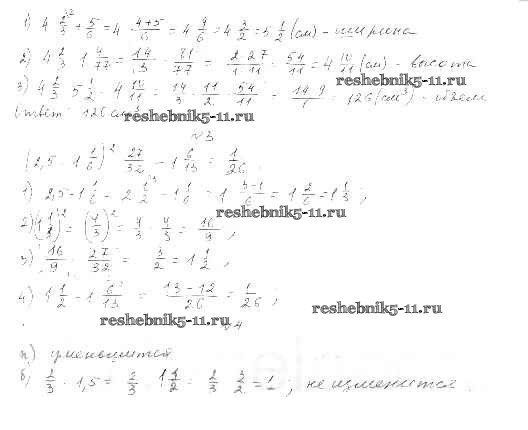 1) 4 2/3 + 5/6 = 4 (4+5)/6 = 4 9/6 = 4 3/2 = 5 1/2 (см) - ширина
2) 4 2/3 · 1 4/77 = 14/3 · 81/77 = 2·27/1·11 = 54/11 = 4 10/11 (см) - высота
reshebnik5-11.ru
3) 4 2/3 · 5 1/2 · 4 10/11 = 14/3 · 11/2 · 54/11 = 14·9/1 = 126 (см³) -
Ответ: 126 см³
reshebnik5-11.ru
№3
(2,5 - 1 1/6)² · 27/32 - 1 6/13 = 1/26
1) 2,5 - 1 1/6 = 2 1/2 - 1 1/6 = 1 (3-1)/6 = 1 2/6 = 1 1/3 ;
reshebnik5-11.ru
2) (1 1/3)² = (4/3)² = 4/3 · 4/3 = 16/9 ;
3) 16/9 · 27/32 = 3/2 = 1 1/2 ;
4) 1 1/2 - 1 6/13 = (13-12)/26 = 1/26 ;
reshebnik5-11.ru
reshebnik5-11.ru
№4
а) уменьшится
б) 2/3 · 1,5 = 2/3 · 1 1/2 = 2/3 · 3/2 = 1 ; не изменится.